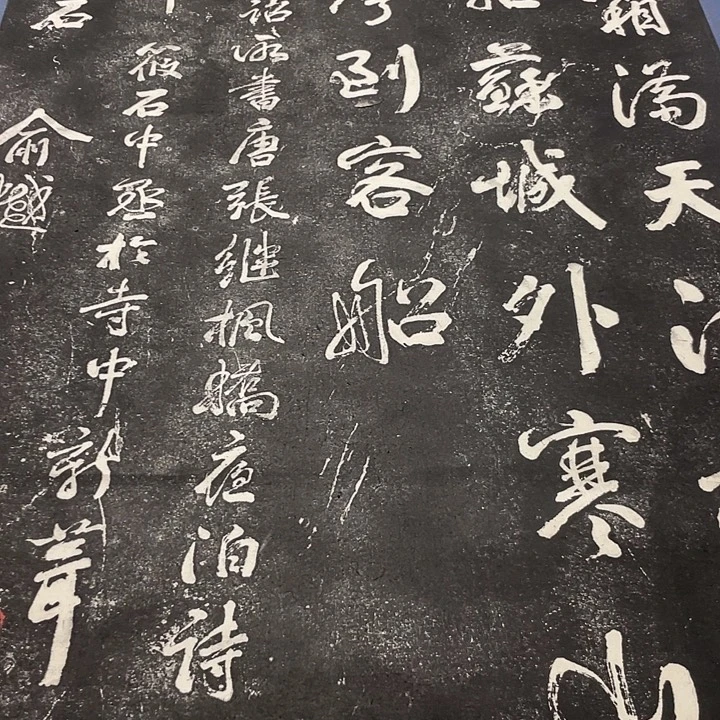 霜滿天
蘇城外寒山
到客船
詔所書唐張繼楓橋夜泊詩
筱石中丞於寺中新葺
石
俞樾